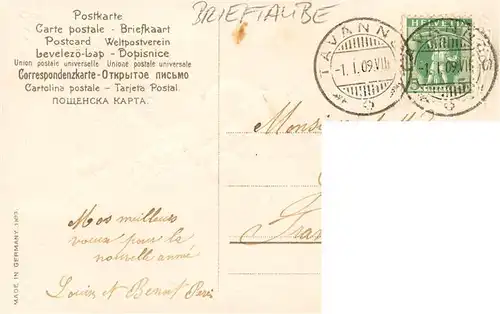 BRIEFTAUBE
Postkarte
Carte postale - Briefkaart
Postcard Weltpostverein
Levelező-Lap - Dopisnice
Union postale universelle Unione postale universale
Correspondenzkarte - Открытое письмо
Cartolina postale - Tarjeta Postal.
ПОЩЕНСКА КАРТА.
HELVETIA
TAVANNES
-1. I. 09. VIII
Mos meilleurs
voeux pour la
nouvelle année
Louis
MADE IN GERMANY.